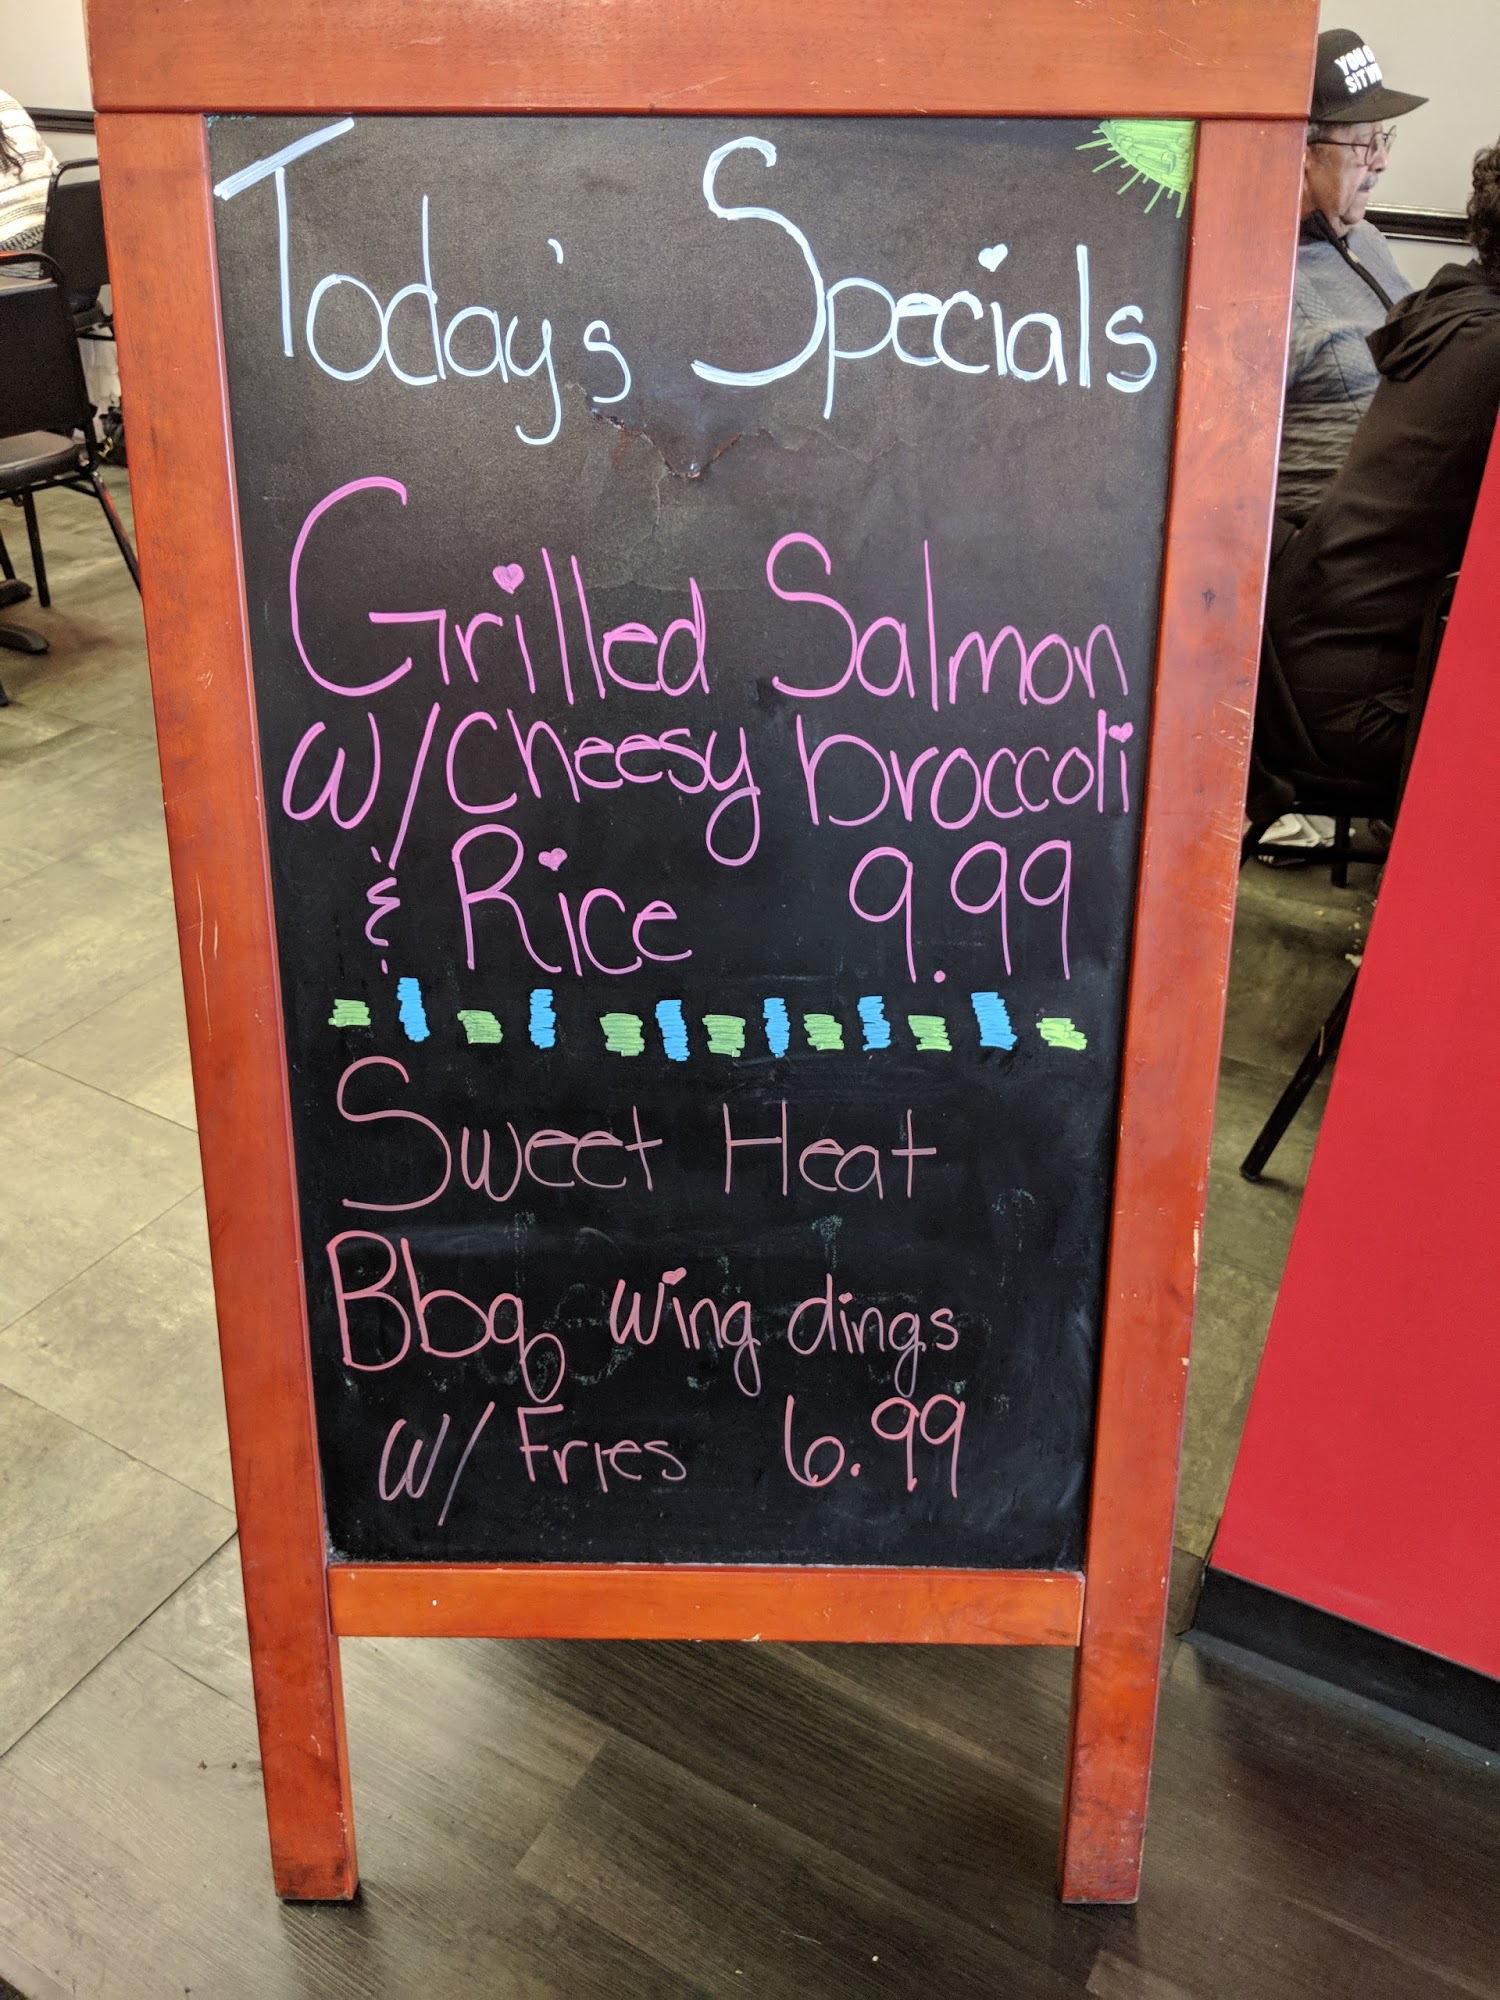 Today's Specials
Grilled Salmon
w/Cheesy broccoli
& Rice 9.99
Sweet Heat
Bbq wing dings
w/ Fries 6.99
YOU
SIT